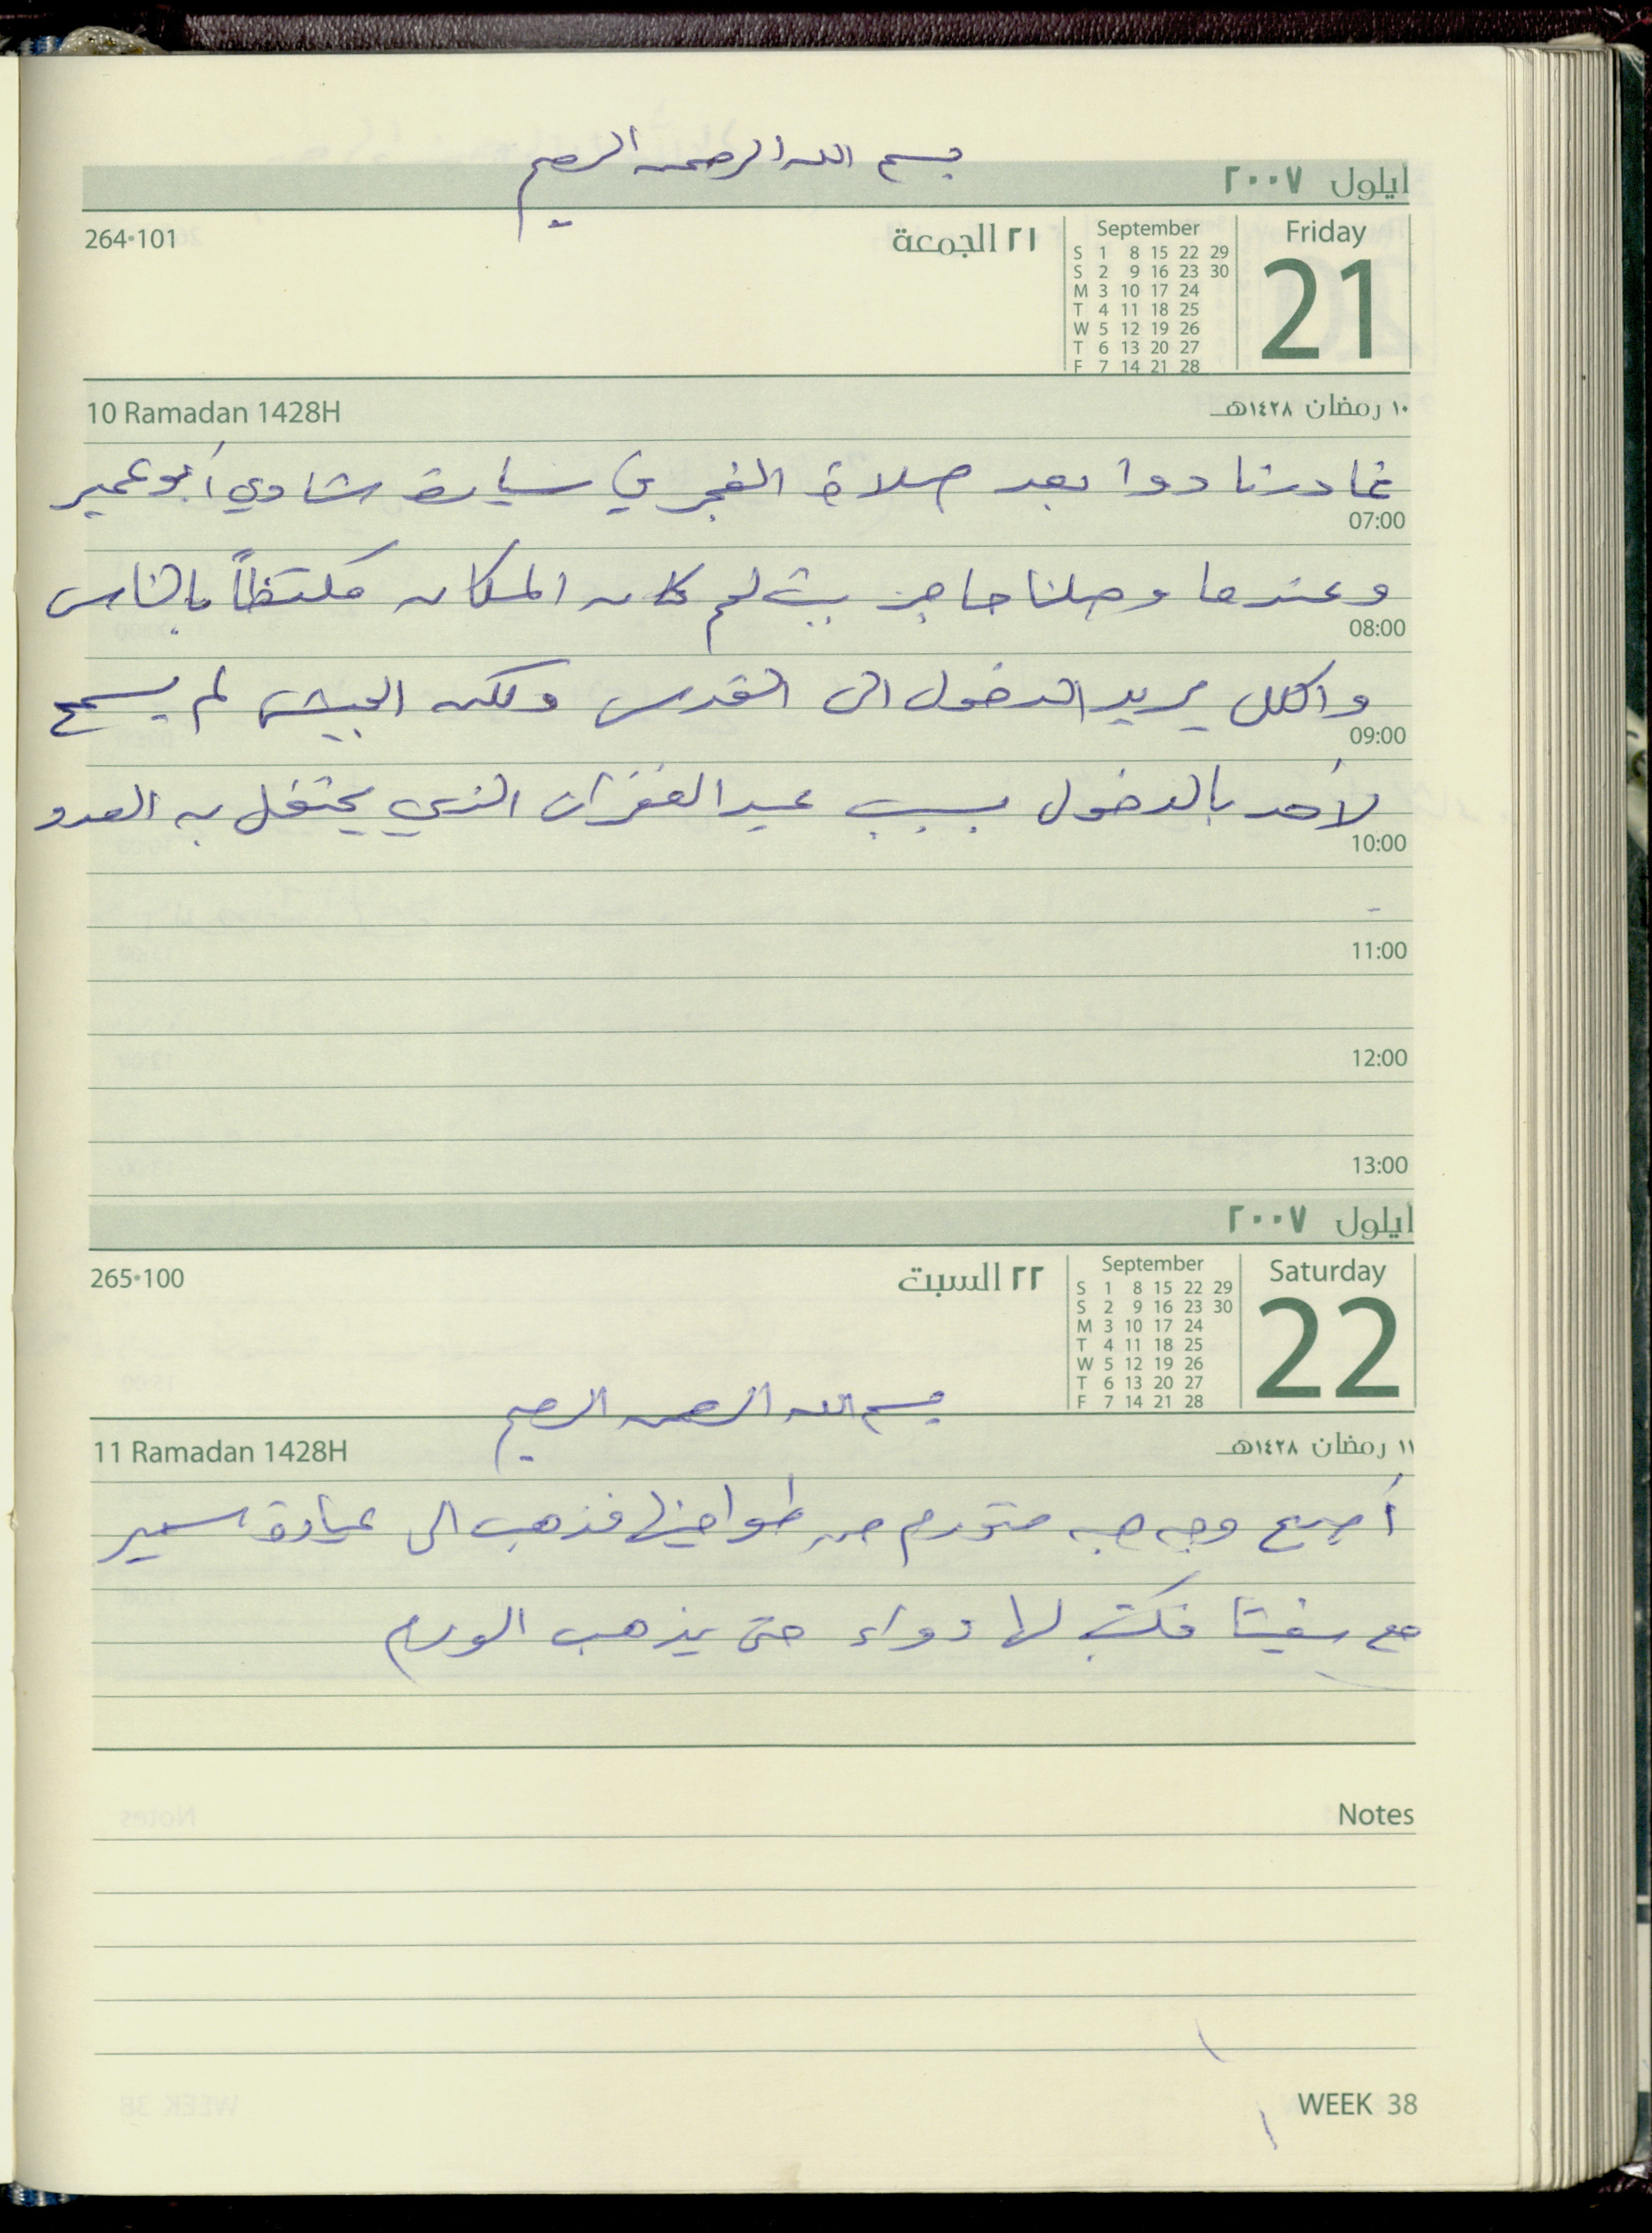 بسم الله الرحمن الرحيم
أيلول ٢٠٠٧
264•101
٢١ الجمعة
September
S 1 8 15 22 29
S 2 9 16 23 30
M 3 10 17 24
T 4 11 18 25
W 5 12 19 26
T 6 13 20 27
F 7 14 21 28
Friday
21
10 Ramadan 1428H
١٠ رمضان ١٤٢٨هـ
غادرنا دورا بعد صلاة الفجر في سيارة شادي أبو عمير
07:00
وعندما وصلنا حاجز بيت لحم كان المكان مكتظاً بالناس
08:00
والكل يريد الدخول الى القدس ولكن الجيش لم يسمح
09:00
لأحد بالدخول بسبب عيد الغفران الذي يحتفل به العدو
10:00
11:00
12:00
13:00
أيلول ٢٠٠٧
265•100
٢٢ السبت
September
S 1 8 15 22 29
S 2 9 16 23 30
M 3 10 17 24
T 4 11 18 25
W 5 12 19 26
T 6 13 20 27
F 7 14 21 28
Saturday
22
بسم الله الرحمن الرحيم
11 Ramadan 1428H
١١ رمضان ١٤٢٨هـ
أصبح وجه هبه متورم من طواحينها فذهب الى عيادة سمير
مع فكتب لها دواء حتى يذهب الورم
Notes
WEEK 38